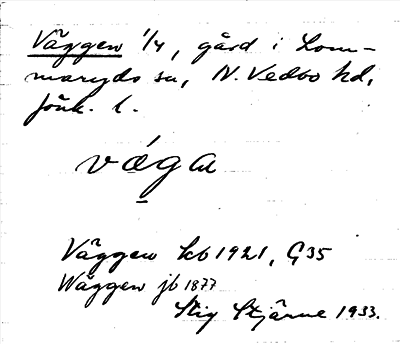 Väggen 1/4, gård i Lom-
maryds sn, N. Vedbo hd,
Jönk. l.
vægan
Väggen kb 1921, G35
Wäggen jb 1877
Stig Stjärne 1933.